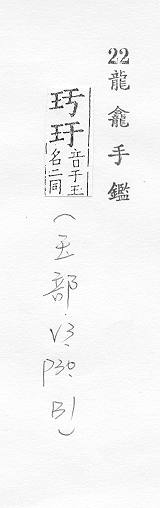 22龍龕手鑑
玗玗音于玉
名二同
(玉部.V3.
P30.
B1)